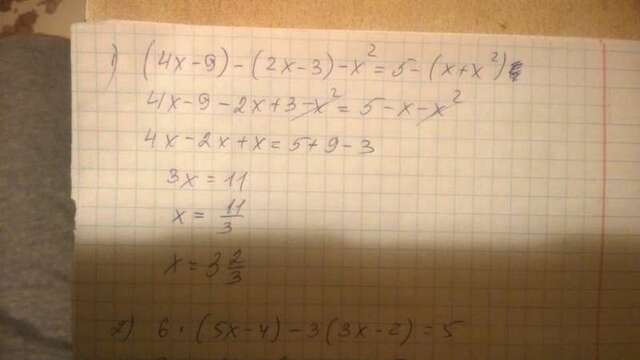 1) (4x-9)-(2x-3)-x²=5-(x+x²)
4x-9-2x+3-x²=5-x-x²
4x-2x+x=5+9-3
3x=11
x=11/3
x=3 2/3
2) 6·(5x-4)-3(3x-2)=5